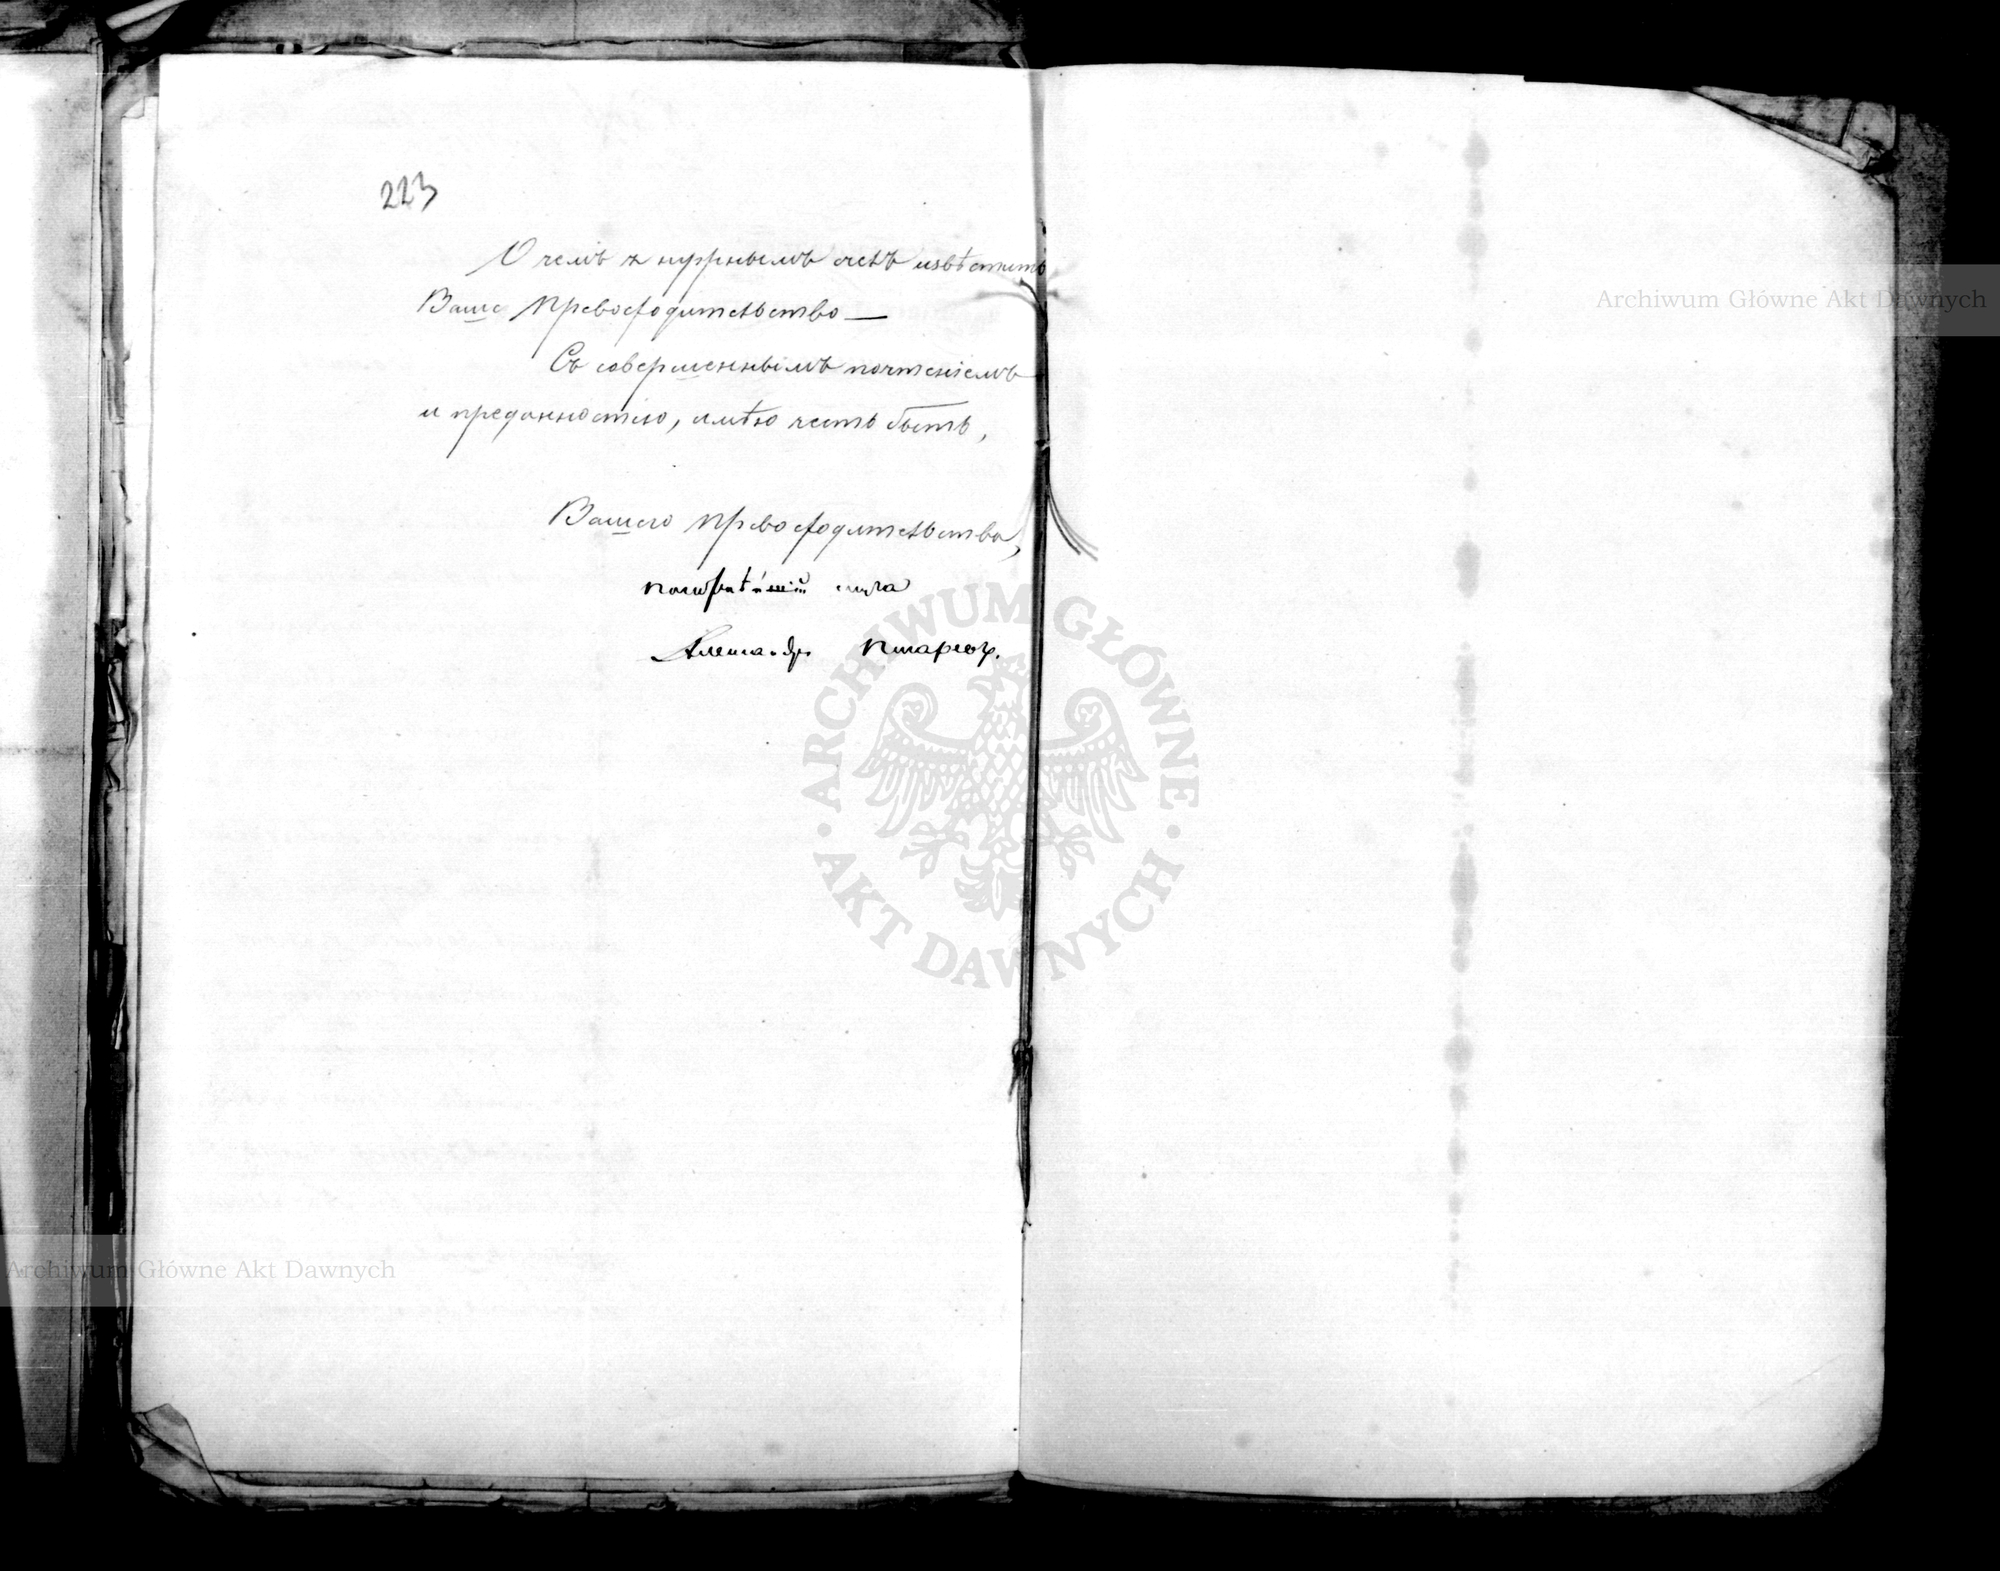 223
О чемъ я нужнымъ счелъ извѣстить
Ваше Превосходительство —
Съ совершеннымъ почтеніемъ
и преданностію, имѣю честь быть,
Вашего Превосходительства,
покорнѣйшій слуга
Александръ
Archiwum Główne Akt Dawnych
ARCHIWUM GŁÓWNE
AKT DAWNYCH
Archiwum Główne Akt Dawnych